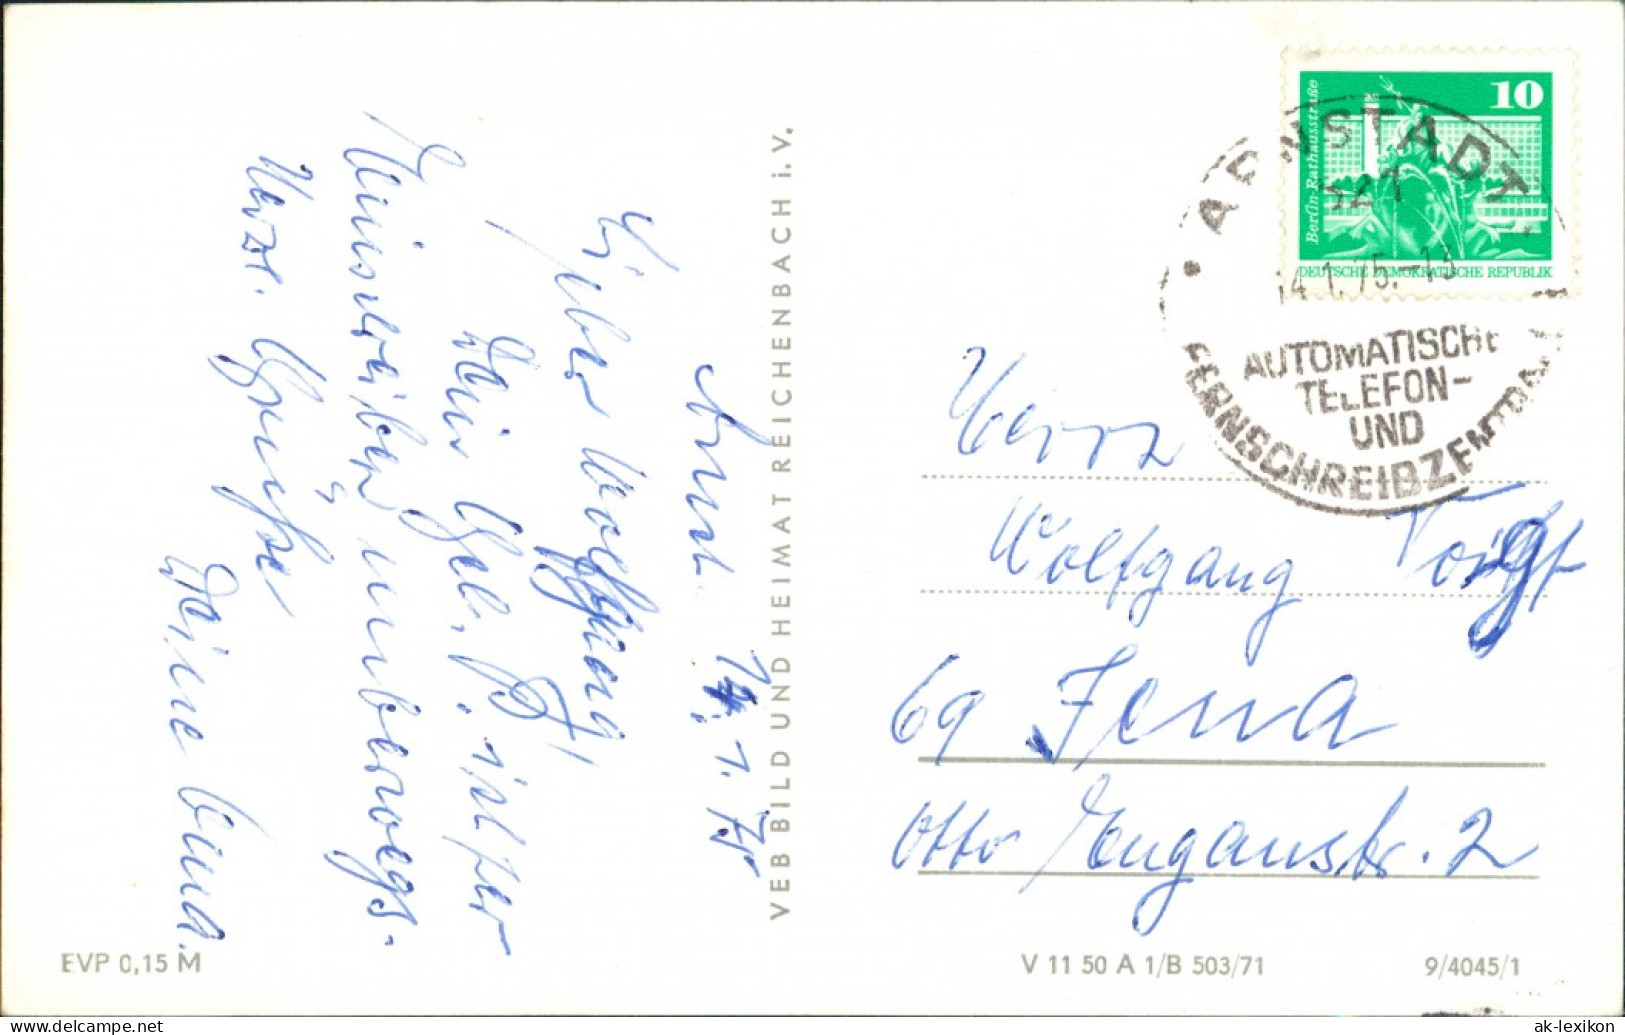 Arnst. 14. 1. 75
Lieber Wolfgang,
Dein Gel. P. ist per
Einschreiben unterwegs.
Herzl. Grüße
Deine
VEB BILD UND HEIMAT REICHENBACH i. V.
10
Berlin-Rathausstraße
DEUTSCHE DEMOKRATISCHE REPUBLIK
ARNSTADT
521
14.1.75.-13
AUTOMATISCHE
TELEFON-
UND
FERNSCHREIBZENTRALE
Herrn
Wolfgang Voigt
69 Jena
Otto Engaustr. 2
EVP 0,15 M
V 11 50 A 1/B 503/71
9/4045/1
ak-lexikon